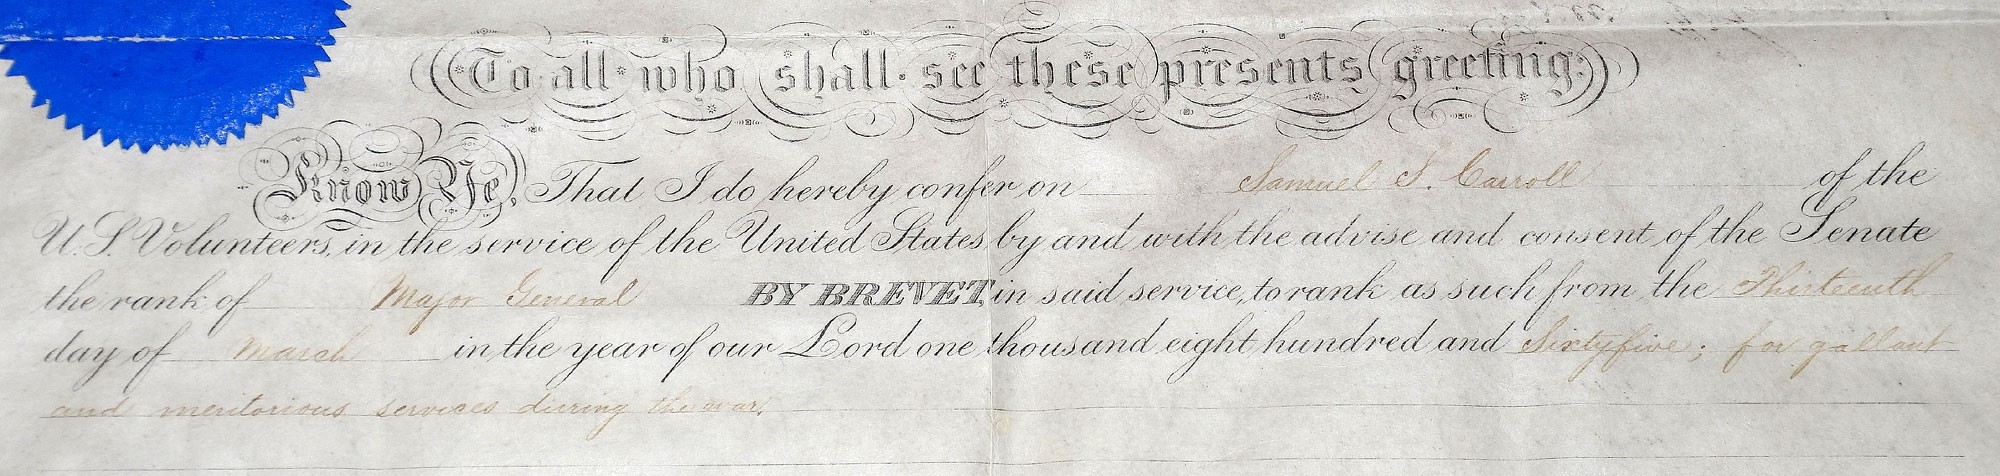 To all who shall see these presents greeting:
Know Ye, That I do hereby confer on Samuel S. Carroll of the
U.S. Volunteers, in the service of the United States by and with the advise and consent of the Senate
the rank of Major General BY BREVET, in said service, to rank as such from the Thirteenth
day of March in the year of our Lord one thousand eight hundred and Sixtyfive; for gallant
and meritorious services during the war.